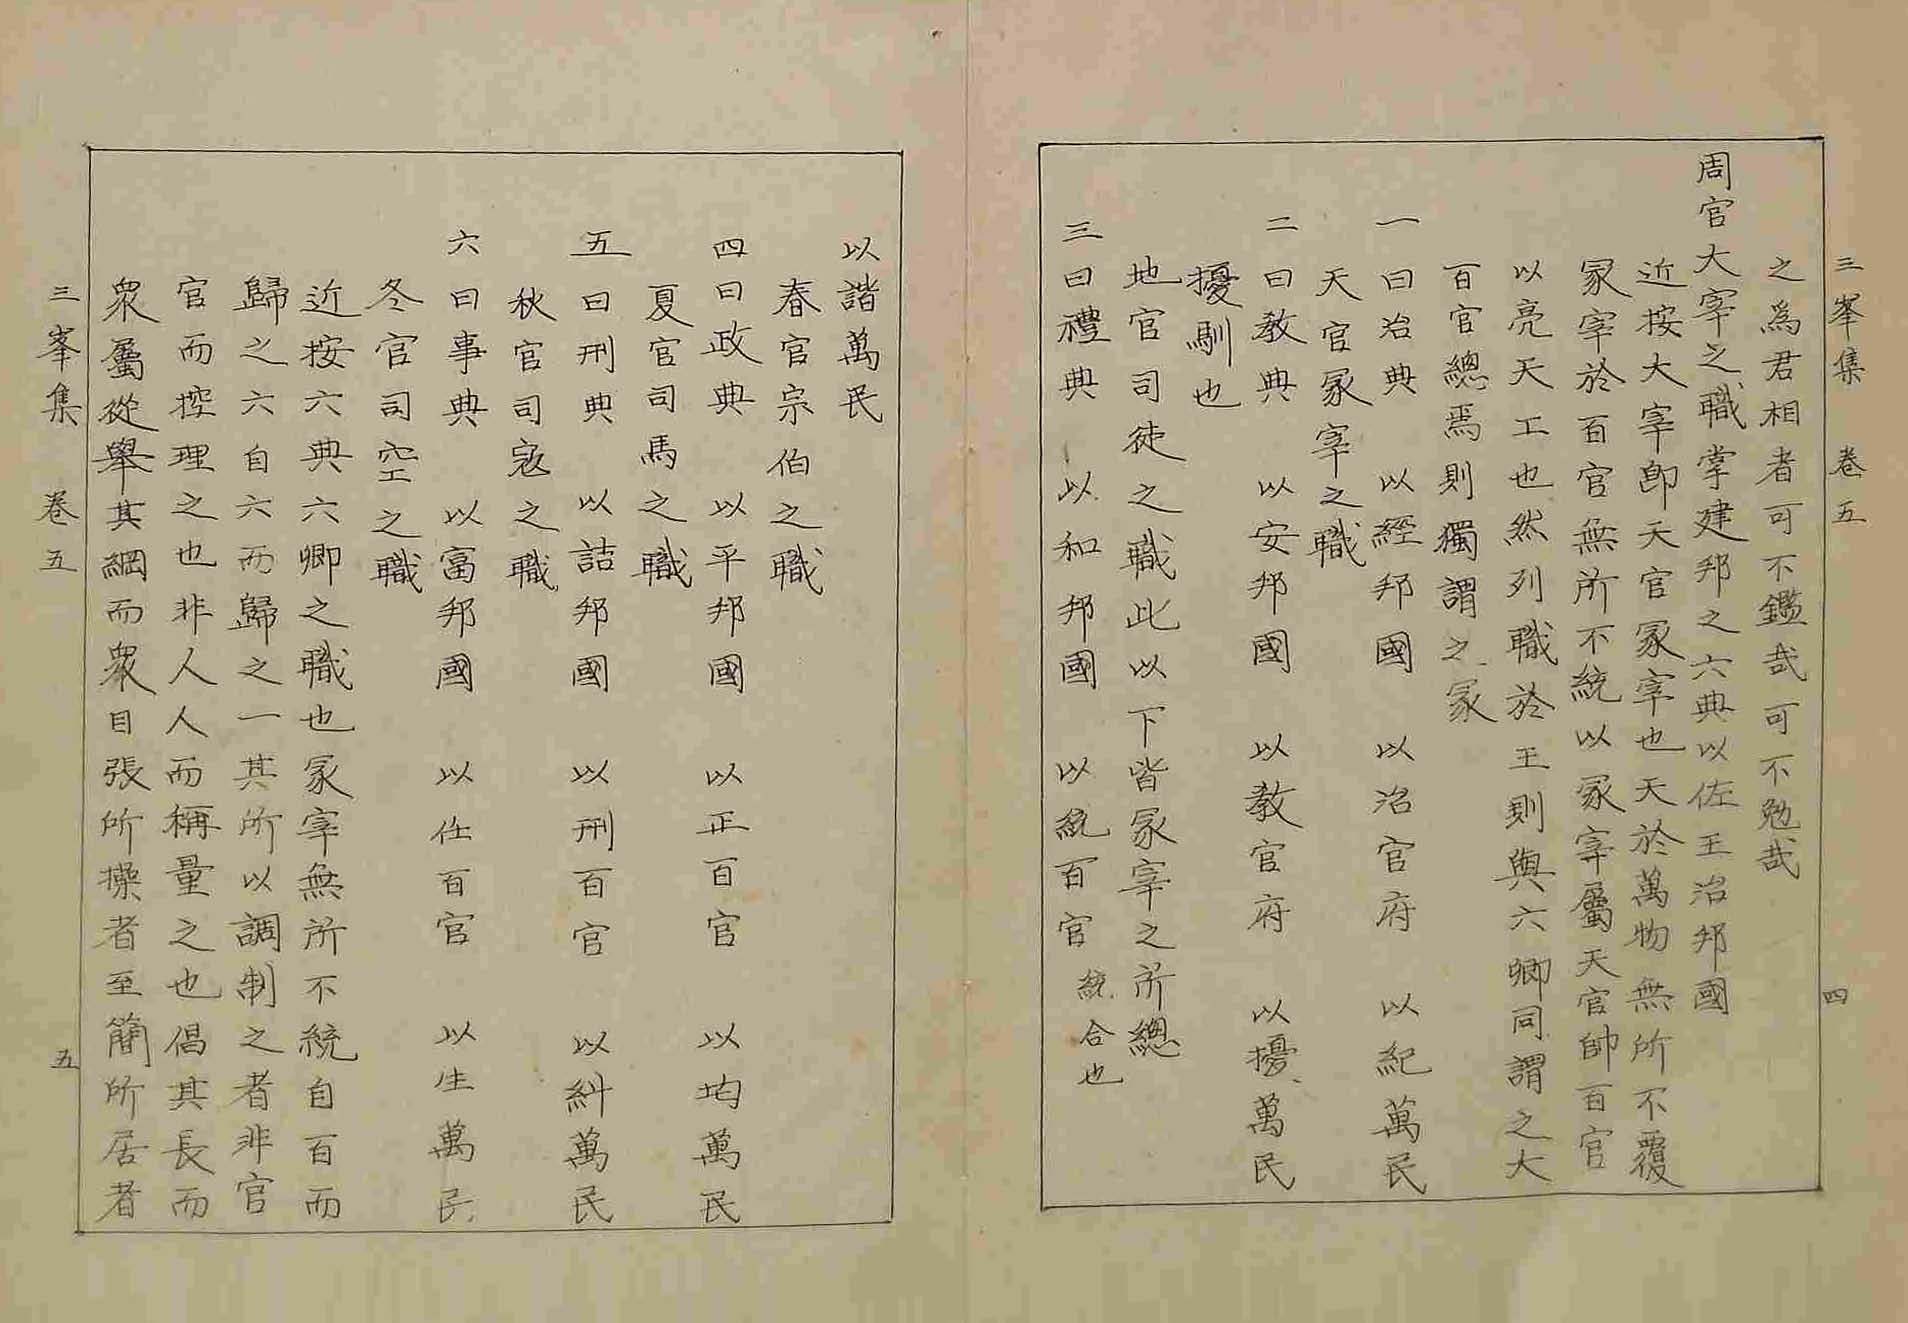 三峯集　卷五　四
之爲君相者可不鑑哉可不勉哉
周官大宰之職掌建邦之六典以佐王治邦國
近按大宰卽天官冢宰也天於萬物無所不覆
冢宰於百官無所不統以冢宰屬天官帥百官
以亮天工也然列職於王則與六卿同謂之大
百官總焉則獨謂之冢
一曰治典　以經邦國　以治官府　以紀萬民
天官冢宰之職
二曰教典　以安邦國　以教官府　以擾萬民
擾馴也
地官司徒之職此以下皆冢宰之所總
三曰禮典　以和邦國　以統百官　統合也
以諧萬民
春官宗伯之職
四曰政典　以平邦國　以正百官　以均萬民
夏官司馬之職
五曰刑典　以詰邦國　以刑百官　以糾萬民
秋官司寇之職
六曰事典　以富邦國　以任百官　以生萬民
冬官司空之職
近按六典六卿之職也冢宰無所不統自百而
歸之六自六而歸之一其所以調制之者非官
官而控理之也非人人而稱量之也倡其長而
衆屬從舉其綱而衆目張所操者至簡所居者
三峯集　卷五　五